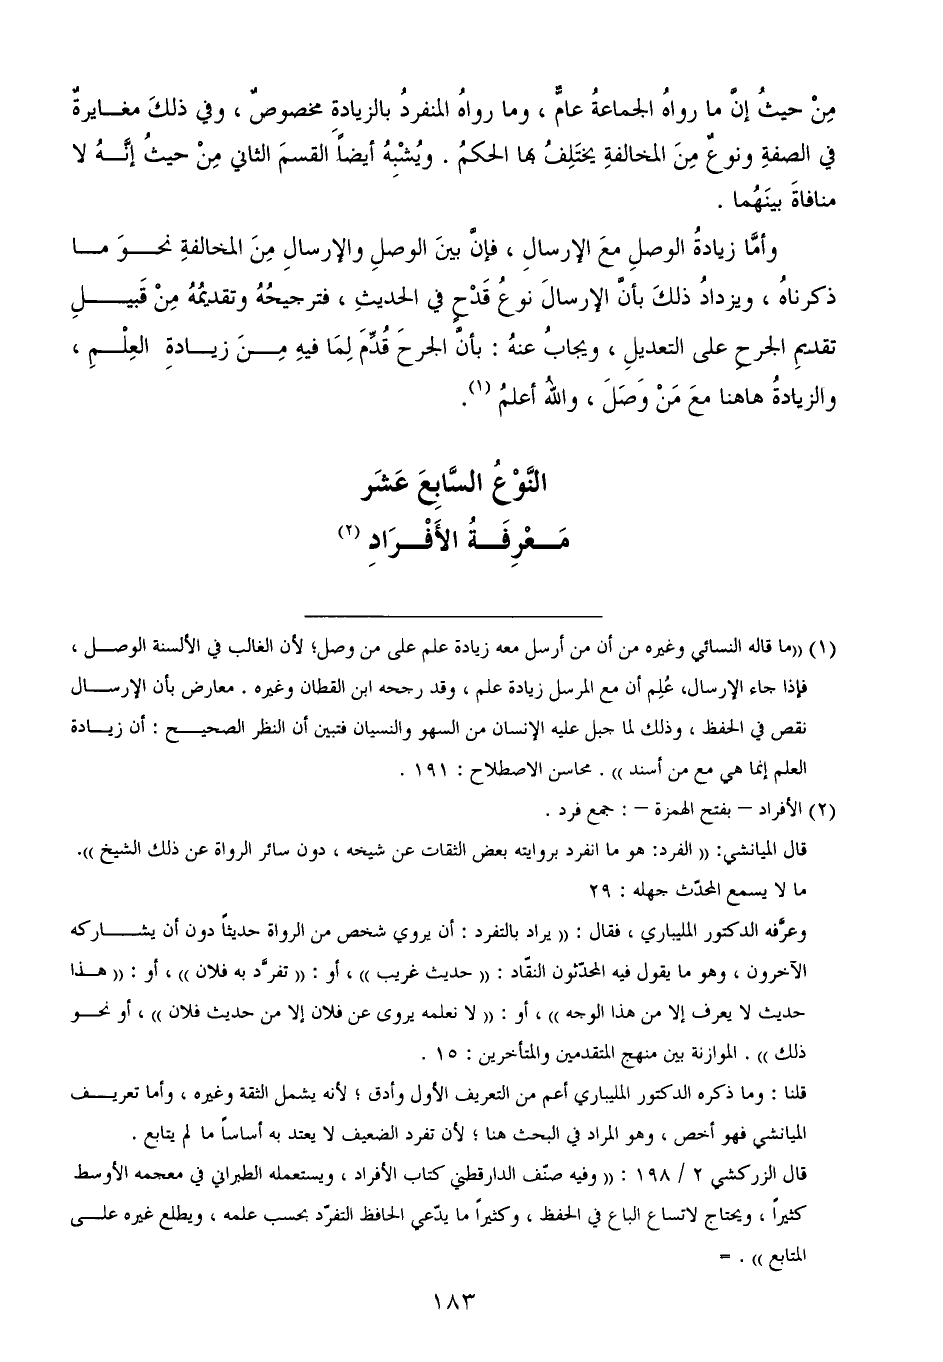 مِنْ حيثُ إنَّ ما رواهُ الجماعةُ عامٌّ ، وما رواهُ المنفردُ بالزيادةِ مخصوصٌ ، وفي ذلكَ مغايرةٌ
في الصفةِ ونوعٌ مِنَ المخالفةِ يختَلِفُ بها الحكمُ . ويُشْبِهُ أيضاً القسمَ الثاني مِنْ حيثُ إنَّهُ لا
منافاةَ بينَهُما .
وأمَّا زيادةُ الوصلِ معَ الإرسالِ ، فإنَّ بينَ الوصلِ والإرسالِ مِنَ المخالفةِ نحوَ ما
ذكرناهُ ، ويزدادُ ذلكَ بأنَّ الإرسالَ نوعُ قَدْحٍ في الحديثِ ، فترجيحُهُ وتقديمُهُ مِنْ قَبيلِ
تقديمِ الجرحِ على التعديلِ ، ويجابُ عنهُ : بأنَّ الجرحَ قُدِّمَ لِمَا فيهِ مِنَ زيادةِ العِلْمِ ،
والزيادةُ هاهنا معَ مَنْ وَصَلَ ، واللهُ أعلمُ (١).
النَّوْعُ السَّابِعَ عَشَر
مَعْرِفَةُ الأَفْرَادِ (٢)
(١) ((ما قاله النسائي وغيره من أن من أرسل معه زيادة علم على من وصل؛ لأن الغالب في الألسنة الوصل ،
فإذا جاء الإرسال، عُلِم أن مع المرسل زيادة علم ، وقد رجحه ابن القطان وغيره . معارض بأن الإرسال
نقص في الحفظ ، وذلك لما جبل عليه الإنسان من السهو والنسيان فتبين أن النظر الصحيح : أن زيادة
العلم إنما هي مع من أسند )) . محاسن الاصطلاح : ١٩١ .
(٢) الأفراد – بفتح الهمزة – : جمع فرد .
قال الميانشي: (( الفرد: هو ما انفرد بروايته بعض الثقات عن شيخه ، دون سائر الرواة عن ذلك الشيخ )).
ما لا يسمع المحدّث جهله : ٢٩
وعرَّفه الدكتور المليباري ، فقال : (( يراد بالتفرد : أن يروي شخص من الرواة حديثاً دون أن يشاركه
الآخرون ، وهو ما يقول فيه المحدّثون النقّاد : (( حديث غريب )) ، أو : (( تفرَّد به فلان )) ، أو : (( هذا
حديث لا يعرف إلا من هذا الوجه )) ، أو : (( لا نعلمه يروى عن فلان إلا من حديث فلان )) ، أو نحو
ذلك )) . الموازنة بين منهج المتقدمين والمتأخرين : ١٥ .
قلنا : وما ذكره الدكتور المليباري أعم من التعريف الأول وأدق ؛ لأنه يشمل الثقة وغيره ، وأما تعريف
الميانشي فهو أخص ، وهو المراد في البحث هنا ؛ لأن تفرد الضعيف لا يعتد به أساساً ما لم يتابع .
قال الزركشي ٢ / ١٩٨ : (( وفيه صنّف الدارقطني كتاب الأفراد ، ويستعمله الطبراني في معجمه الأوسط
كثيراً ، ويحتاج لاتساع الباع في الحفظ ، وكثيراً ما يدّعي الحافظ التفرّد بحسب علمه ، ويطلع غيره على
المتابع )) . =
١٨٣